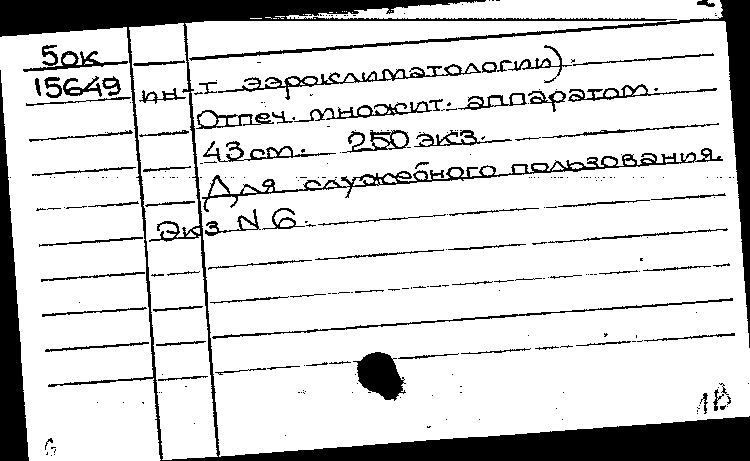 5ок
15649 ин-т аэроклиматологии).
Отпеч. множит. аппаратом.
43 см. 250 экз.
Для служебного пользования.
Экз. N 6.
1В